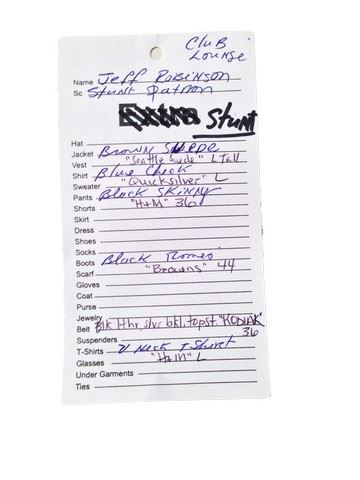 Club
Lounge
Name Jeff Robinson
Sc Stunt Patron
Stunt
Hat
Jacket Brown Suede
Vest "Seattle Suede" L Tall
Shirt Blue Check
Sweater "Quicksilver" L
Pants Black Skinny
Shorts "H+M" 36
Skirt
Dress
Shoes
Socks
Boots Black Romeo
Scarf "Browns" 44
Gloves
Coat
Purse
Jewelry
Belt Blk lthr, slvr bkl, topst. "KODIAK"
Suspenders 36
T-Shirts V Neck T Shirt
Glasses "H+M" L
Under Garments
Ties